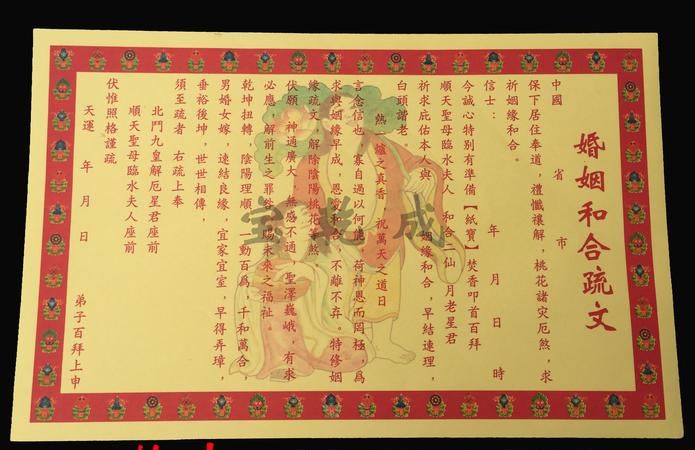 婚姻和合疏文
中國 省 市
保下居住奉道，禮懺禳解，桃花諸灾厄煞，求
祈姻緣和合。
信士： 年 月 日 時
今誠心特別有準備【紙寶】焚香叩首百拜
順天聖母臨水夫人 和合二仙 月老星君
祈求庇佑本人與 姻緣和合，早結連理，
白頭諧老。
熱一爐之真香 祝萬天之道日
言念信也，寡自過以何能，荷神恩而罔極，爲
求與姻緣早成，恩愛和合，不離不弃。特修姻
緣疏文，解除陰陽桃花等煞
伏願 神通廣大，無感不通，聖澤巍峨，有求
必應，解前生之罪咎，賜未來之福祉。
乾坤扭轉，陰陽理順，一動百爲，千和萬合，
男婚女嫁，速結良緣，宜家宜室，早得弄璋，
垂裕後坤，世世相傳，
須至疏者 右疏上奉
北鬥九皇解厄星君座前
順天聖母臨水夫人座前
伏惟照格謹疏
天運 年 月 日 弟子百拜上申
成
宝